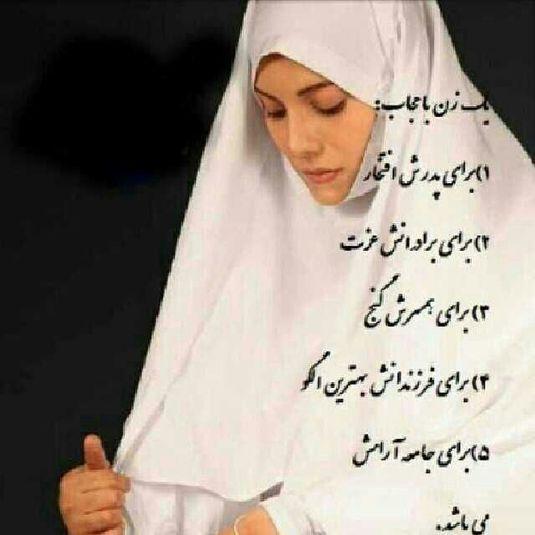 یک زن باحجاب:
۱)برای پدرش افتخار
۲)برای برادرانش عزت
۳)برای همسرش گنج
۴)برای فرزندانش بهترین الگو
۵)برای جامعه آرامش
می باشد.